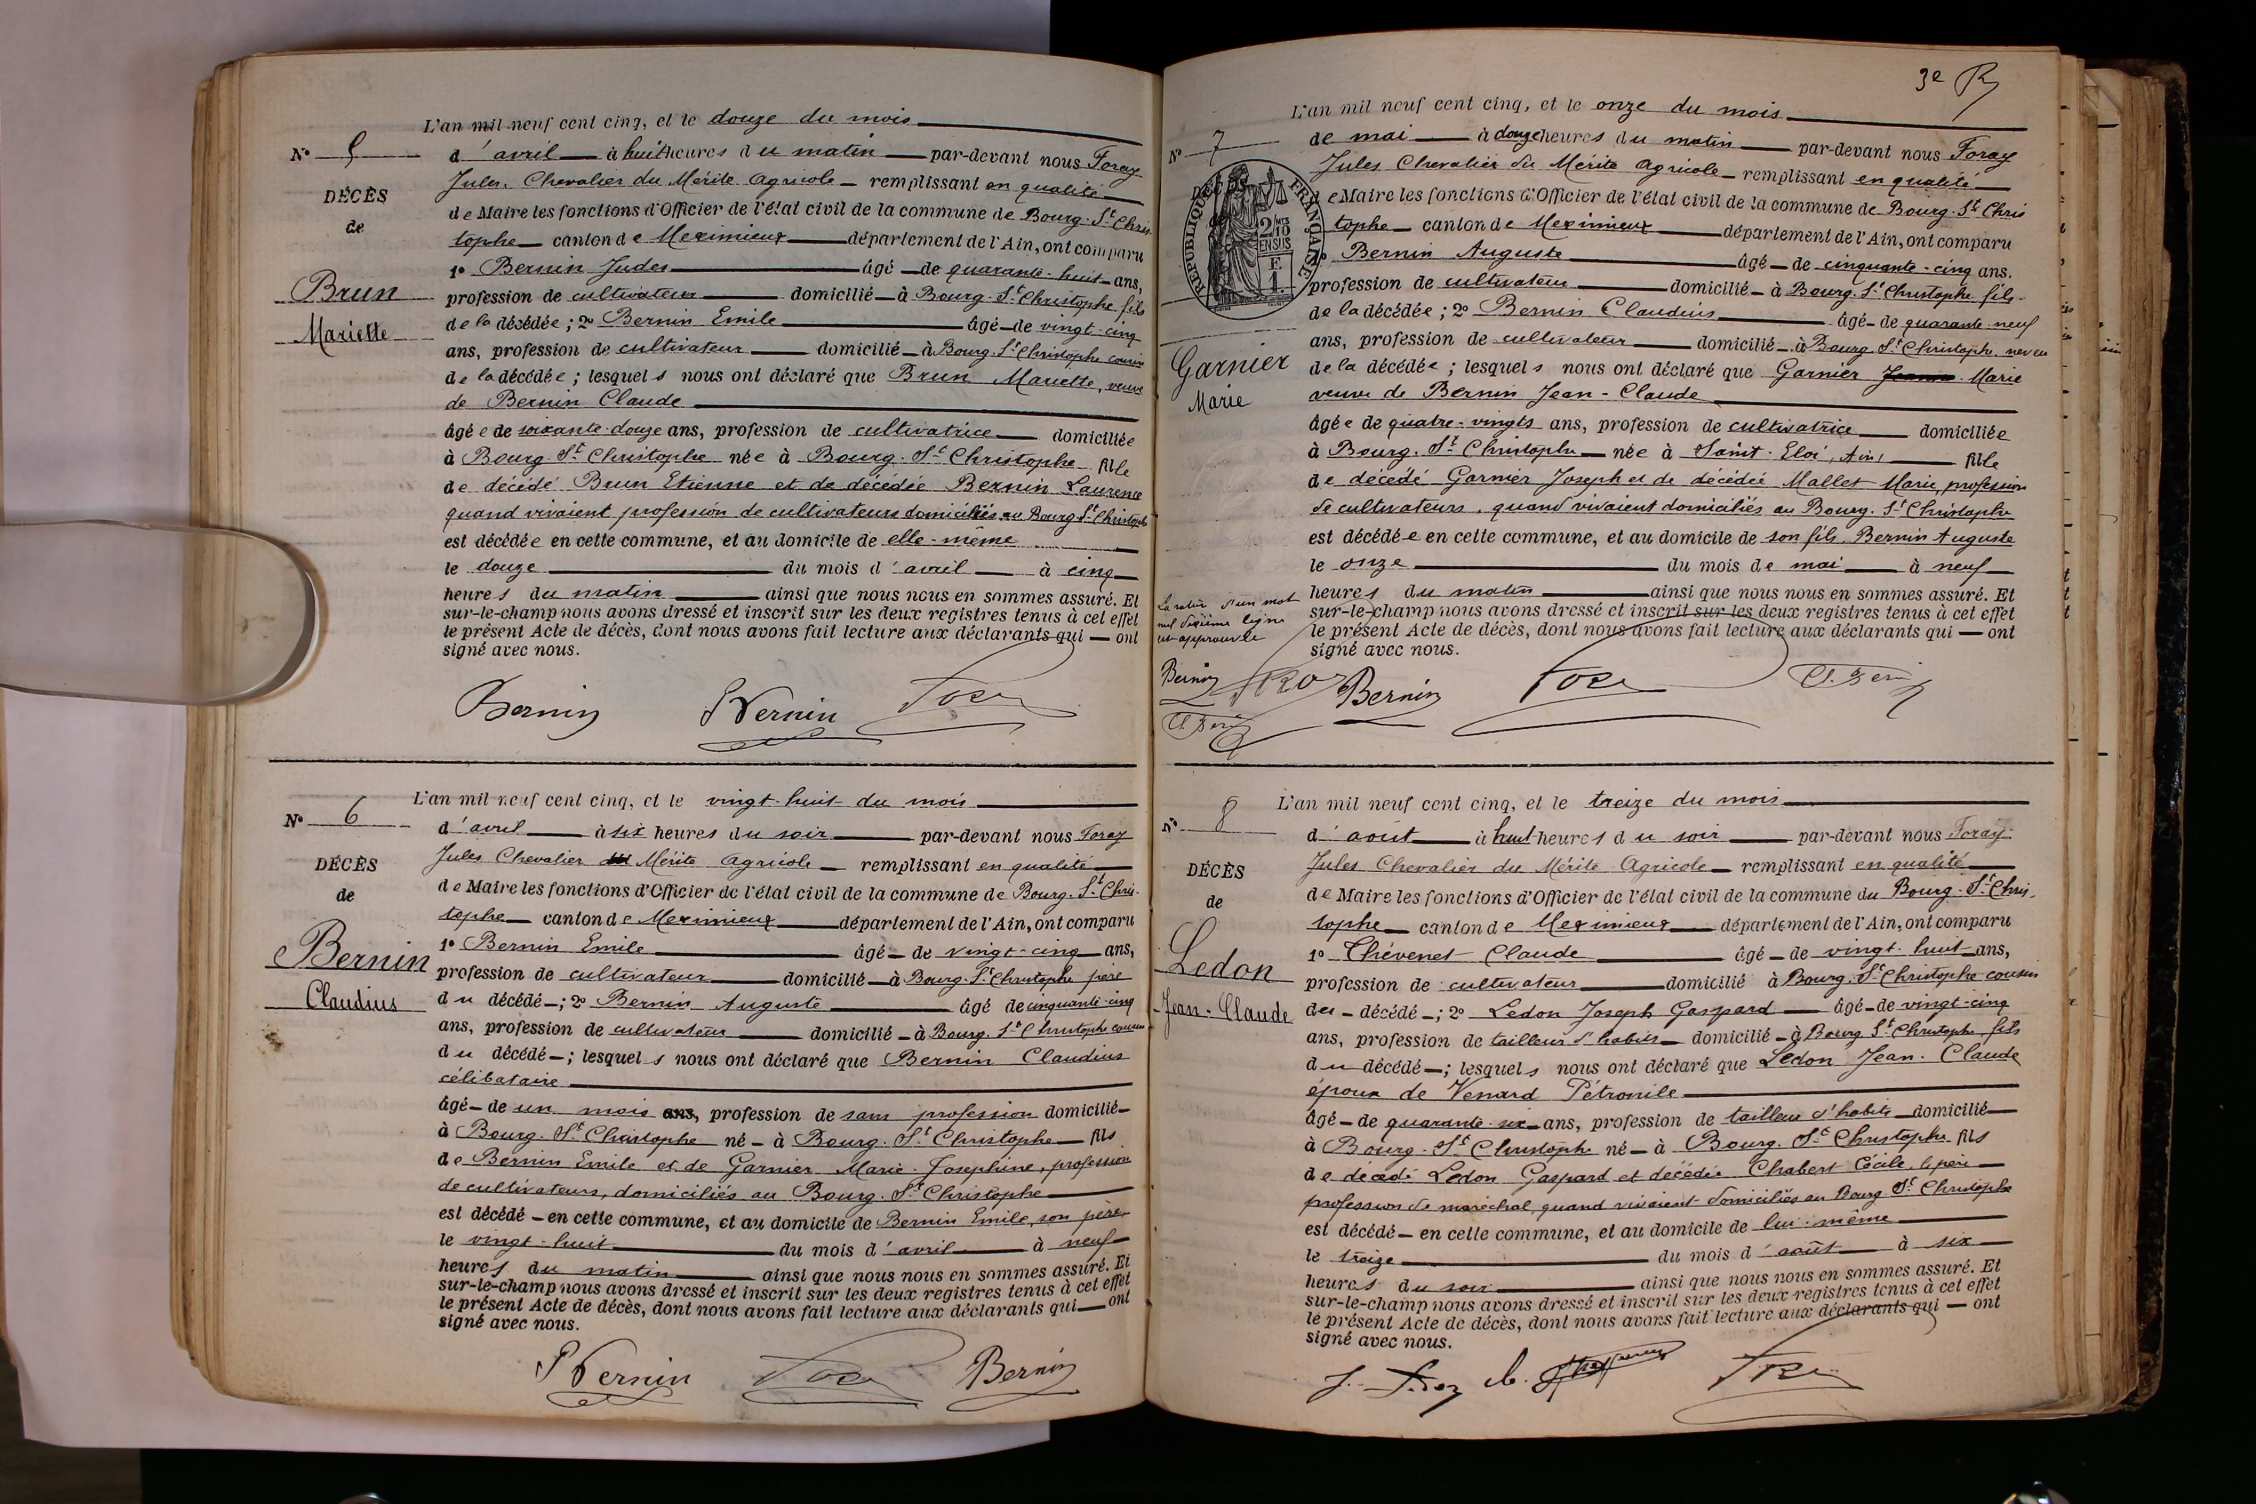 L'an mil neuf cent cinq, et le douze du mois
N° 5
d'avril à huit heures du matin par-devant nous Foray
Jules, Chevalier du Mérite Agricole remplissant en qualité
DÉCÈS
de Maire les fonctions d'Officier de l'état civil de la commune de Bourg-St Chris
de
tophe canton de Meximieux département de l'Ain, ont comparu
1° Bernin Judes âgé de quarante-huit ans,
Brun
profession de cultivateur domicilié à Bourg-St Christophe fils
Mariette
de la décédée; 2° Bernin Emile âgé de vingt-cinq
ans, profession de cultivateur domicilié à Bourg-St Christophe cousin
de la décédée; lesquels nous ont déclaré que Brun Mariette, veuve
de Bernin Claude
âgée de soixante-douze ans, profession de cultivatrice domiciliée
à Bourg-St Christophe née à Bourg-St Christophe fille
de décédé Brun Etienne et de décédée Bernin Laurence
quand vivaient profession de cultivateurs domiciliés au Bourg St Christophe
est décédée en cette commune, et au domicile de elle-même
le douze du mois d'avril à cinq
heures du matin ainsi que nous nous en sommes assuré. Et
sur-le-champ nous avons dressé et inscrit sur les deux registres tenus à cet effet
le présent Acte de décès, dont nous avons fait lecture aux déclarants qui ont
signé avec nous.
Bernin Bernin
L'an mil neuf cent cinq, et le vingt-huit du mois
N° 6
d'avril à six heures du soir par-devant nous Foray
Jules Chevalier du Mérite Agricole remplissant en qualité
DÉCÈS
de Maire les fonctions d'Officier de l'état civil de la commune de Bourg-St Chris-
de
tophe canton de Meximieux département de l'Ain, ont comparu
1° Bernin Emile âgé de vingt-cinq ans,
Bernin
profession de cultivateur domicilié à Bourg-St Christophe père
Claudius
du décédé; 2° Bernin Auguste âgé de cinquante-cinq
ans, profession de cultivateur domicilié à Bourg-St Christophe cousin
du décédé; lesquels nous ont déclaré que Bernin Claudius
célibataire
âgé de un mois ans, profession de sans profession domicilié
à Bourg-St Christophe né à Bourg-St Christophe fils
de Bernin Emile et de Garnier Marie-Josephine, profession
de cultivateurs, domiciliés au Bourg-St Christophe
est décédé en cette commune, et au domicile de Bernin Emile, son père
le vingt-huit du mois d'avril à neuf
heures du matin ainsi que nous nous en sommes assuré. Et
sur-le-champ nous avons dressé et inscrit sur les deux registres tenus à cet effet
le présent Acte de décès, dont nous avons fait lecture aux déclarants qui ont
signé avec nous.
Bernin Bernin
3e
L'an mil neuf cent cinq, et le onze du mois
N° 7
de mai à douze heures du matin par-devant nous Foray
Jules Chevalier du Mérite Agricole remplissant en qualité
de Maire les fonctions d'Officier de l'état civil de la commune de Bourg-St Chris
RÉPUBLIQUE FRANÇAISE
2/10
EN SUS
F. 1.
tophe canton de Meximieux département de l'Ain, ont comparu
Bernin Auguste âgé de cinquante-cinq ans.
profession de cultivateur domicilié à Bourg-St Christophe fils
de la décédée; 2° Bernin Claudius âgé de quarante-neuf
ans, profession de cultivateur domicilié à Bourg-St Christophe neveu
Garnier
Marie
de la décédée; lesquels nous ont déclaré que Garnier Jeanne Marie
veuve de Bernin Jean-Claude
âgée de quatre-vingts ans, profession de cultivatrice domiciliée
à Bourg-St Christophe née à Saint-Eloi, Ain, fille
de décédé Garnier Joseph et de décédée Mallet Marie, profession
de cultivateurs, quand vivaient domiciliés au Bourg-St Christophe
est décédée en cette commune, et au domicile de son fils Bernin Auguste
le onze du mois de mai à neuf
heures du matin ainsi que nous nous en sommes assuré. Et
sur-le-champ nous avons dressé et inscrit sur les deux registres tenus à cet effet
le présent Acte de décès, dont nous avons fait lecture aux déclarants qui ont
signé avec nous.
La rature d'un mot
nul dixième ligne
est approuvée
Bernin
Bernin
L'an mil neuf cent cinq, et le treize du mois
N° 8
d'août à huit heures du soir par-devant nous Foray
Jules Chevalier du Mérite Agricole remplissant en qualité
DÉCÈS
de Maire les fonctions d'Officier de l'état civil de la commune du Bourg-St Chris-
de
tophe canton de Meximieux département de l'Ain, ont comparu
1° Thévenet Claude âgé de vingt-huit ans,
Ledon
profession de cultivateur domicilié à Bourg-St Christophe cousin
Jean-Claude
du décédé; 2° Ledon Joseph Gaspard âgé de vingt-cinq
ans, profession de tailleur d'habits domicilié à Bourg St Christophe fils
du décédé; lesquels nous ont déclaré que Ledon Jean-Claude
époux de Venard Pétronile
âgé de quarante-six ans, profession de tailleur d'habits domicilié
à Bourg-St Christophe né à Bourg-St Christophe fils
de décédé Ledon Gaspard et décédée Chabert Cécile, le père
profession de maréchal, quand vivaient domiciliés au Bourg St Christophe
est décédé en cette commune, et au domicile de lui-même
le treize du mois d'août à six
heures du soir ainsi que nous nous en sommes assuré. Et
sur-le-champ nous avons dressé et inscrit sur les deux registres tenus à cet effet
le présent Acte de décès, dont nous avons fait lecture aux déclarants qui ont
signé avec nous.